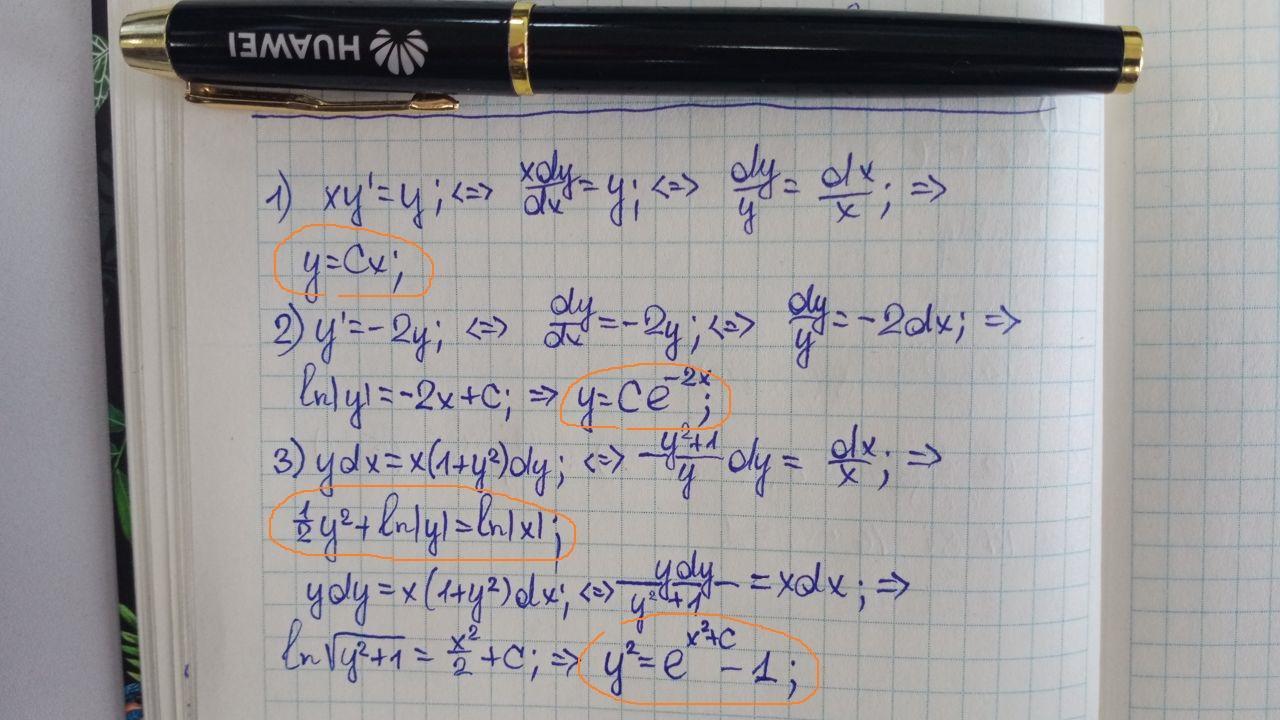 HUAWEI
1) xy'=y; <=> xdy/dx = y; <=> dy/y = dx/x; =>
y=Cx;
2) y'=-2y; <=> dy/dx =-2y; <=> dy/y =-2dx; =>
ln|y|=-2x+C; => y=Ce^-2x;
3) ydx=x(1+y²)dy; <=> y²+1/y dy = dx/x; =>
1/2 y²+ln|y|=ln|x|;
ydy=x(1+y²)dx; <=> ydy/y²+1 = xdx; =>
ln√y²+1 = x²/2 +C; => y²=e^x²+C -1;